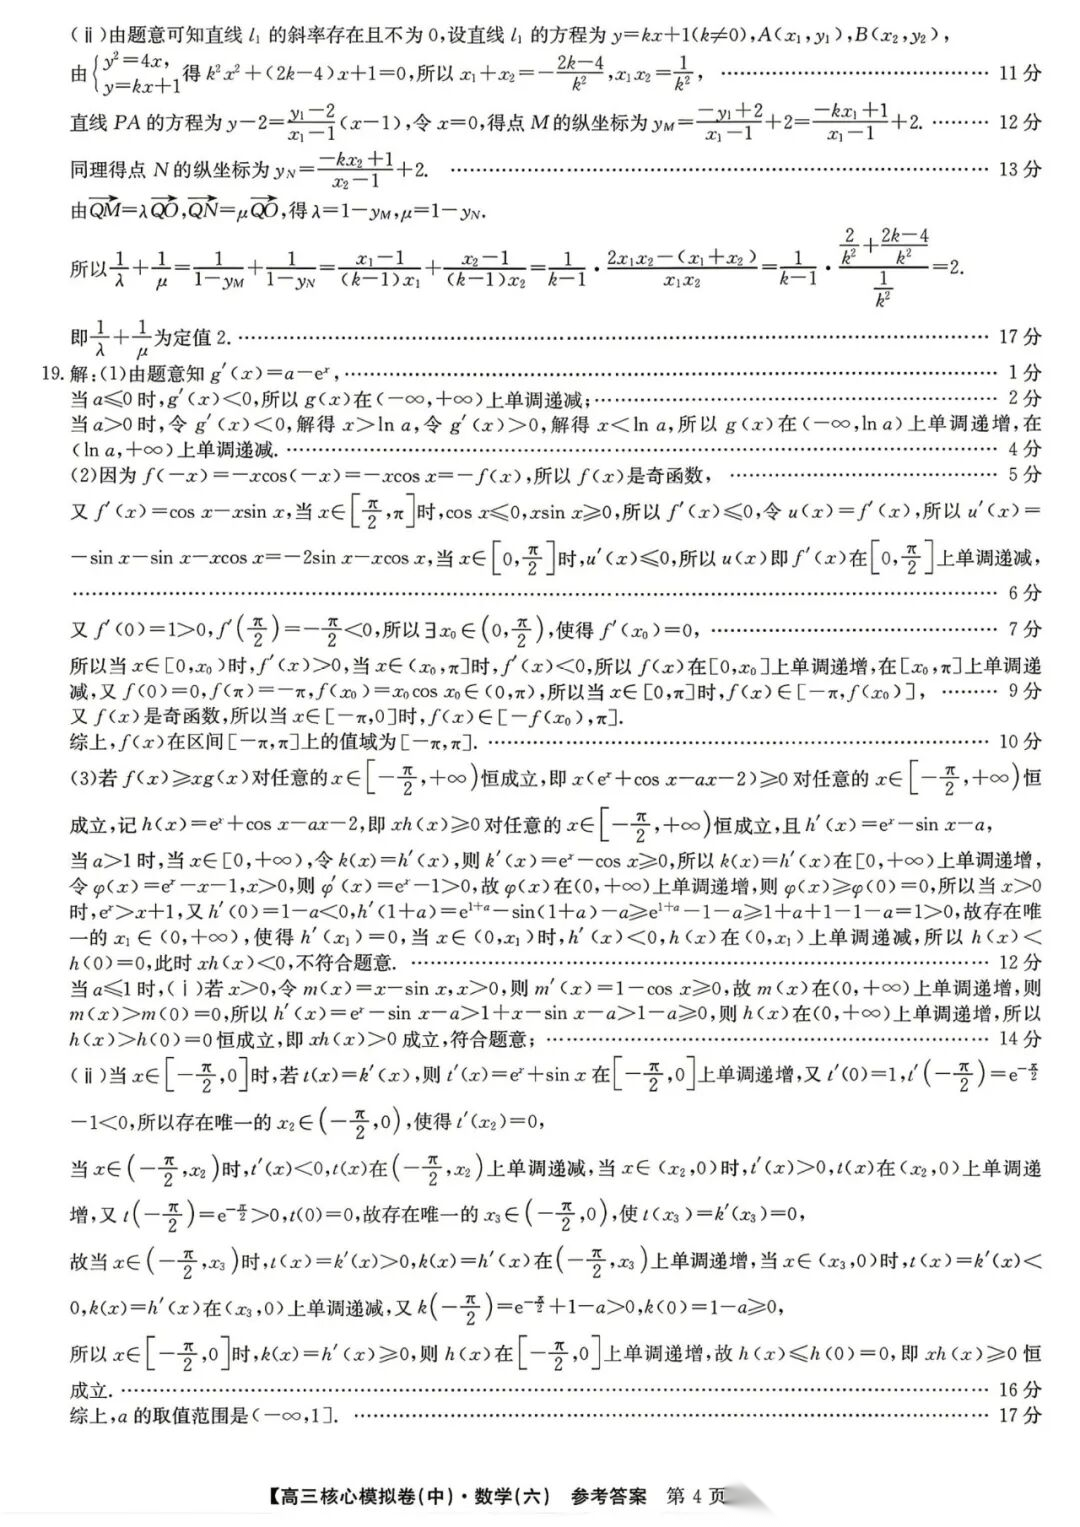 (ⅱ)由题意可知直线 l₁ 的斜率存在且不为 0,设直线 l₁ 的方程为 y=kx+1(k≠0),A(x₁,y₁),B(x₂,y₂),
由{y²=4x, y=kx+1 得 k²x²+(2k-4)x+1=0,所以 x₁+x₂=-(2k-4)/k²,x₁x₂=1/k², …… 11 分
直线 PA 的方程为 y-2=(y₁-2)/(x₁-1)(x-1),令 x=0,得点 M 的纵坐标为 y_M=(-y₁+2)/(x₁-1)+2=(-kx₁+1)/(x₁-1)+2. …… 12 分
同理得点 N 的纵坐标为 y_N=(-kx₂+1)/(x₂-1)+2. …… 13 分
由QM→=λQO→,QN→=μQO→,得 λ=1-y_M,μ=1-y_N.
所以1/λ+1/μ=1/(1-y_M)+1/(1-y_N)=(x₁-1)/((k-1)x₁)+(x₂-1)/((k-1)x₂)=1/(k-1)·(2x₁x₂-(x₁+x₂))/(x₁x₂)=1/(k-1)·(2/k²+(2k-4)/k²)/(1/k²)=2.
即1/λ+1/μ为定值 2. …… 17 分
19. 解:(1)由题意知 g′(x)=a-eˣ, …… 1 分
当 a≤0 时,g′(x)<0,所以 g(x)在(-∞,+∞)上单调递减; …… 2 分
当 a>0 时,令 g′(x)<0,解得 x>ln a,令 g′(x)>0,解得 x<ln a,所以 g(x)在(-∞,ln a)上单调递增,在
(ln a,+∞)上单调递减. …… 4 分
(2)因为 f(-x)=-xcos(-x)=-xcos x=-f(x),所以 f(x)是奇函数, …… 5 分
又 f′(x)=cos x-xsin x,当 x∈[π/2,π]时,cos x≤0,xsin x≥0,所以 f′(x)≤0,令 u(x)=f′(x),所以 u′(x)=
-sin x-sin x-xcos x=-2sin x-xcos x,当 x∈[0,π/2]时,u′(x)≤0,所以 u(x)即 f′(x)在[0,π/2]上单调递减,
…… 6 分
又 f′(0)=1>0,f′(π/2)=-π/2<0,所以∃x₀∈(0,π/2),使得 f′(x₀)=0, …… 7 分
所以当 x∈[0,x₀)时,f′(x)>0,当 x∈(x₀,π]时,f′(x)<0,所以 f(x)在[0,x₀]上单调递增,在[x₀,π]上单调递
减,又 f(0)=0,f(π)=-π,f(x₀)=x₀cos x₀∈(0,π),所以当 x∈[0,π]时,f(x)∈[-π,f(x₀)], …… 9 分
又 f(x)是奇函数,所以当 x∈[-π,0]时,f(x)∈[-f(x₀),π].
综上,f(x)在区间[-π,π]上的值域为[-π,π]. …… 10 分
(3)若 f(x)≥xg(x)对任意的 x∈[-π/2,+∞)恒成立,即 x(eˣ+cos x-ax-2)≥0 对任意的 x∈[-π/2,+∞)恒
成立,记 h(x)=eˣ+cos x-ax-2,即 xh(x)≥0 对任意的 x∈[-π/2,+∞)恒成立,且 h′(x)=eˣ-sin x-a,
当 a>1 时,当 x∈[0,+∞),令 k(x)=h′(x),则 k′(x)=eˣ-cos x≥0,所以 k(x)=h′(x)在[0,+∞)上单调递增,
令 φ(x)=eˣ-x-1,x>0,则 φ′(x)=eˣ-1>0,故 φ(x)在(0,+∞)上单调递增,则 φ(x)≥φ(0)=0,所以当 x>0
时,eˣ>x+1,又 h′(0)=1-a<0,h′(1+a)=e¹⁺ᵃ-sin(1+a)-a≥e¹⁺ᵃ-1-a≥1+a+1-1-a=1>0,故存在唯
一的 x₁∈(0,+∞),使得 h′(x₁)=0,当 x∈(0,x₁)时,h′(x)<0,h(x)在(0,x₁)上单调递减,所以 h(x)<
h(0)=0,此时 xh(x)<0,不符合题意. …… 12 分
当 a≤1 时,(ⅰ)若 x>0,令 m(x)=x-sin x,x>0,则 m′(x)=1-cos x≥0,故 m(x)在(0,+∞)上单调递增,则
m(x)>m(0)=0,所以 h′(x)=eˣ-sin x-a>1+x-sin x-a>1-a≥0,则 h(x)在(0,+∞)上单调递增,所以
h(x)>h(0)=0 恒成立,即 xh(x)>0 成立,符合题意; …… 14 分
(ⅱ)当 x∈[-π/2,0]时,若 t(x)=k′(x),则 t′(x)=eˣ+sin x 在[-π/2,0]上单调递增,又 t′(0)=1,t′(-π/2)=e^(-π/2)
-1<0,所以存在唯一的 x₂∈(-π/2,0),使得 t′(x₂)=0,
当 x∈(-π/2,x₂)时,t′(x)<0,t(x)在(-π/2,x₂)上单调递减,当 x∈(x₂,0)时,t′(x)>0,t(x)在(x₂,0)上单调递
增,又 t(-π/2)=e^(-π/2)>0,t(0)=0,故存在唯一的 x₃∈(-π/2,0),使 t(x₃)=k′(x₃)=0,
故当 x∈(-π/2,x₃)时,t(x)=k′(x)>0,k(x)=h′(x)在(-π/2,x₃)上单调递增,当 x∈(x₃,0)时,t(x)=k′(x)<
0,k(x)=h′(x)在(x₃,0)上单调递减,又 k(-π/2)=e^(-π/2)+1-a>0,k(0)=1-a≥0,
所以 x∈[-π/2,0]时,k(x)=h′(x)≥0,则 h(x)在[-π/2,0]上单调递增,故 h(x)≤h(0)=0,即 xh(x)≥0 恒
成立. …… 16 分
综上,a 的取值范围是(-∞,1]. …… 17 分
【高三核心模拟卷(中)·数学(六) 参考答案 第 4 页